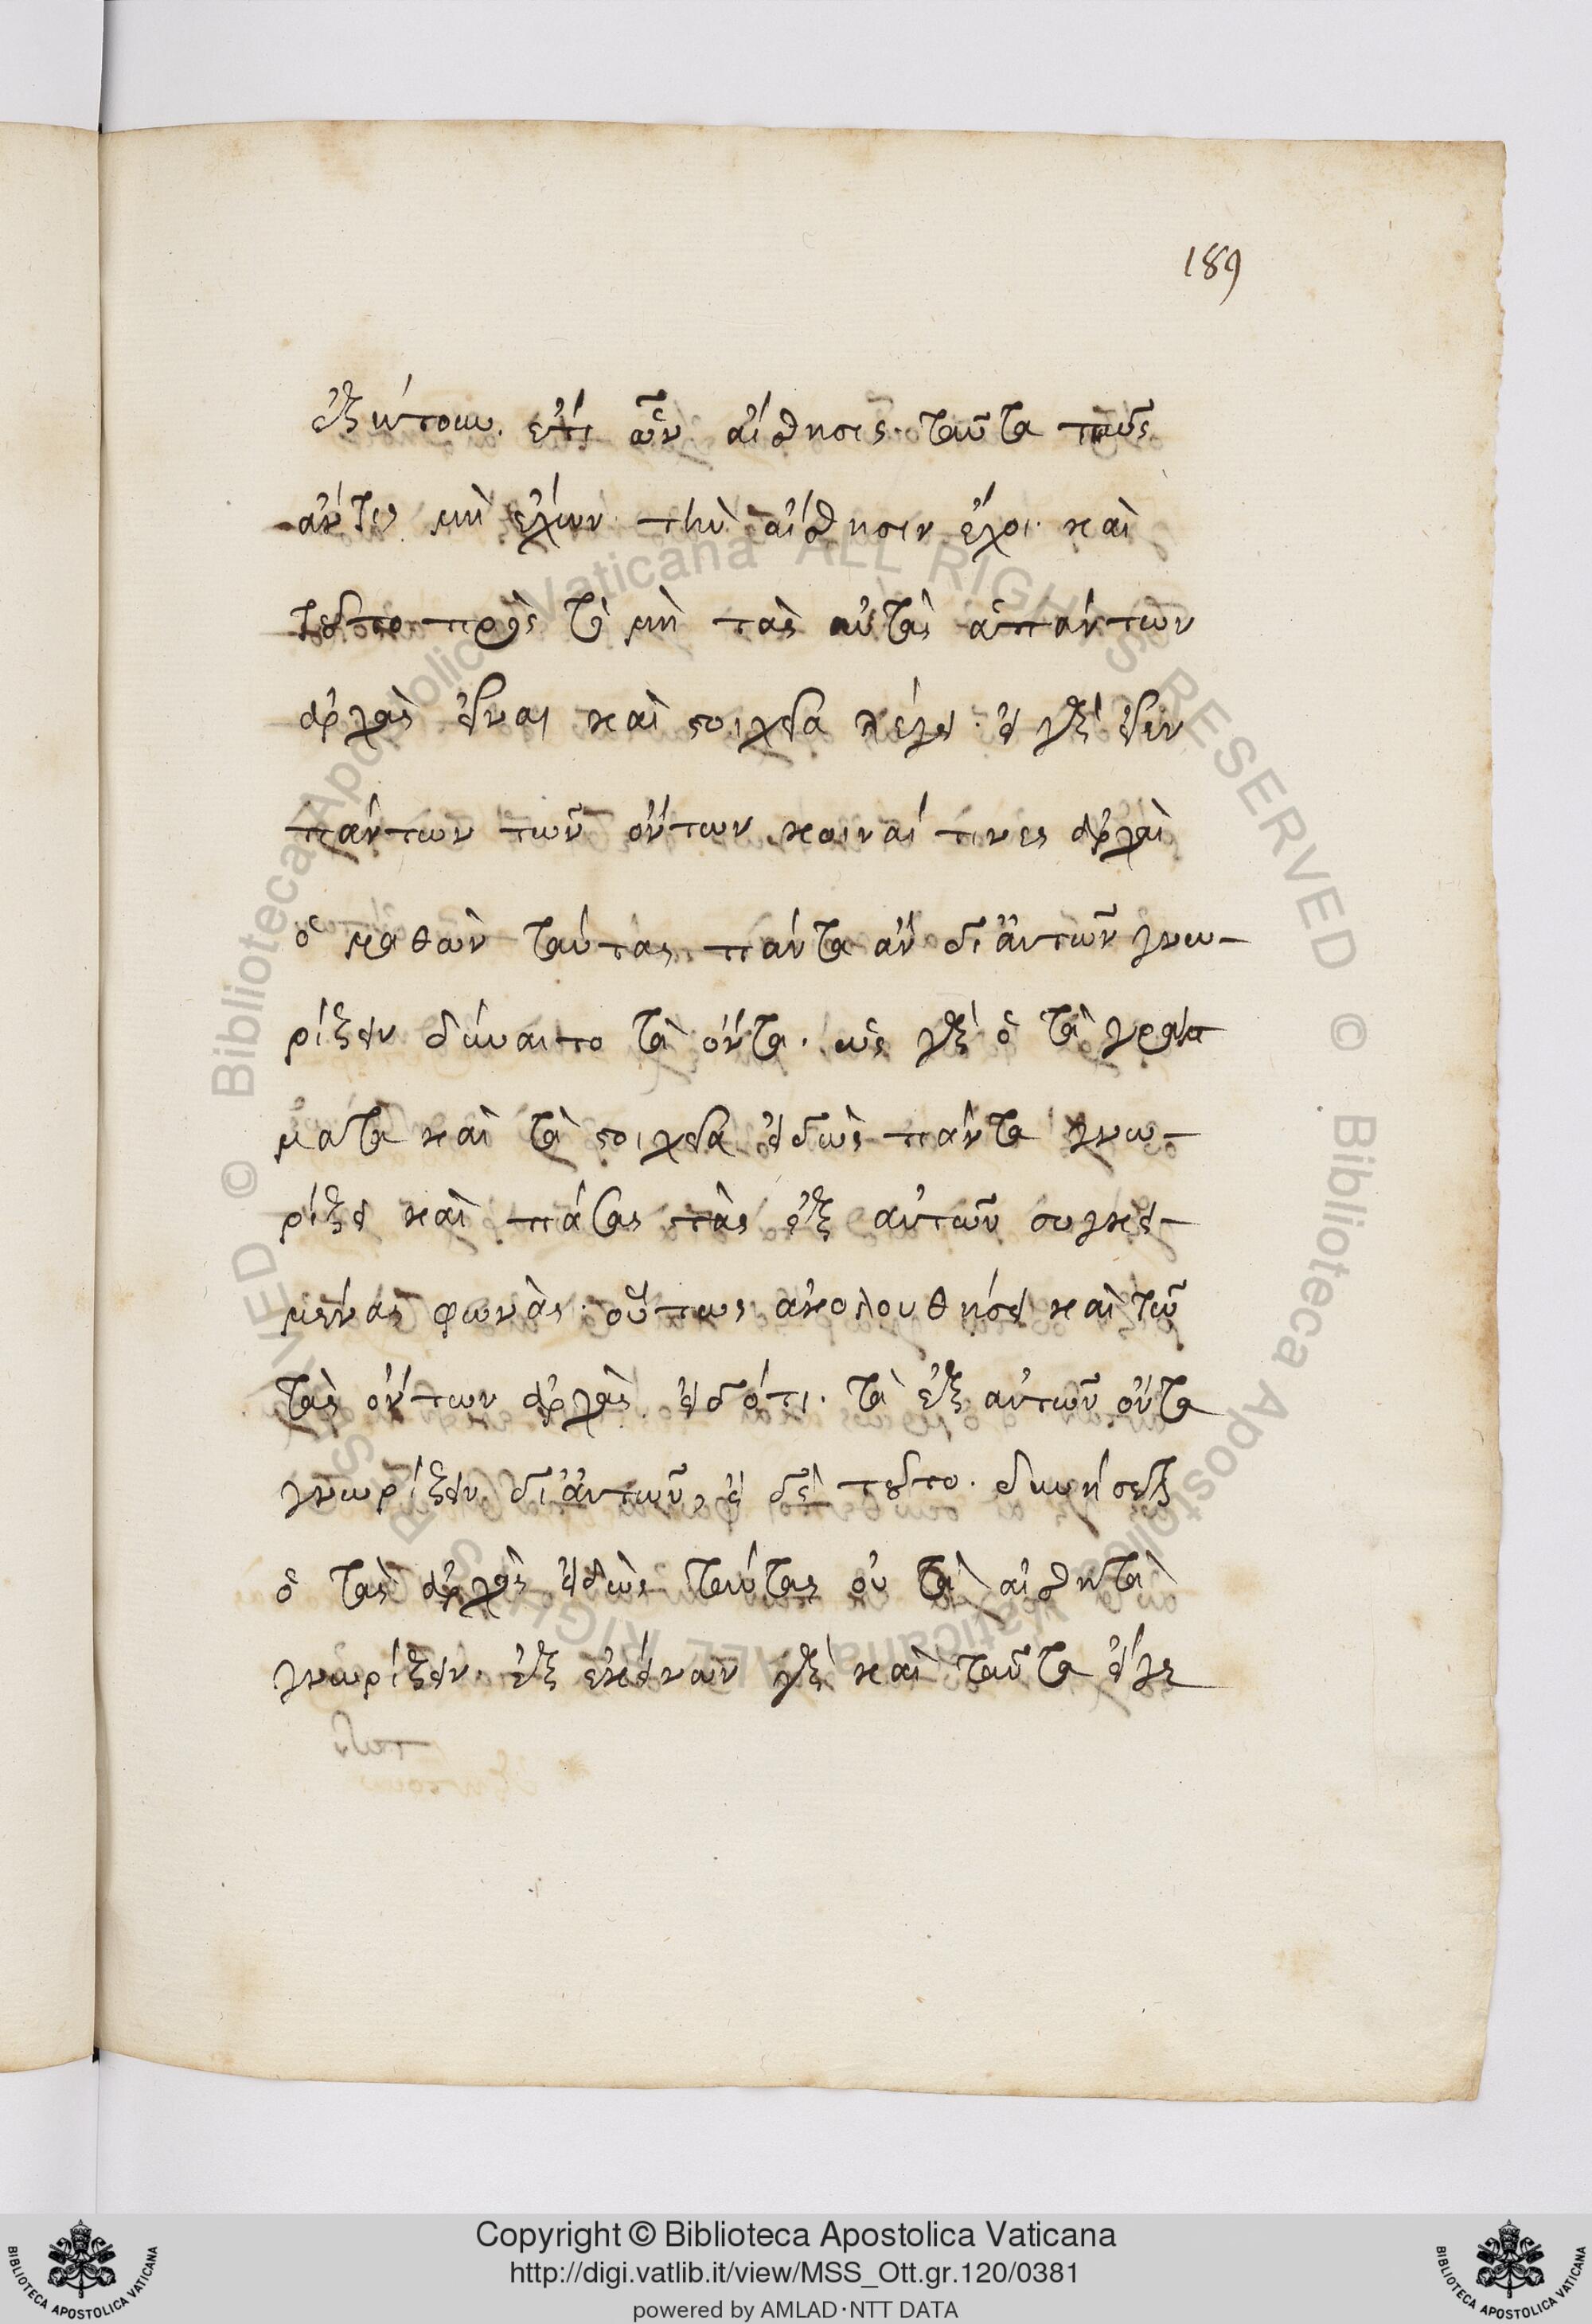 189
ἐζήτουν. ἔτι ὧν αἴσθησις. ταῦτα πῶς
ἄν τις μὴ ἔχων τὴν αἴσθησιν ἔχοι. καὶ
τοῦτο πρὸς τὸ μὴ τὰς αὐτὰς ἁπάντων
ἀρχὰς εἶναι καὶ στοιχεῖα λέγει. εἰ γὰρ εἶεν
πάντων τῶν ὄντων κοιναί τινες ἀρχαὶ
ὁ μαθὼν ταύτας πάντα ἂν δι' αὐτῶν γνω-
ρίζειν δύναιτο τὰ ὄντα. ὡς γὰρ ὁ τὰ γράμ
ματα καὶ τὰ στοιχεῖα εἰδὼς πάντα γνω-
ρίζει καὶ πάσας τὰς ἐξ αὐτῶν συγκει-
μένας φωνὰς. οὕτως ἀκολουθήσει καὶ τῶ
τὰς ὄντων ἀρχὰς εἰδότι. τὰ ἐξ αὐτῶν ὄντα
γνωρίζειν δι' αὐτῶν, εἰ δὲ τοῦτο. δυνήσεται
ὁ τὰς ἀρχὰς εἰδὼς ταύτας οὐ τὰ αἰσθητὰ
γνωρίζειν. ἐξ ἐκείνων γὰρ καὶ ταῦτα εἶχε
Copyright © Biblioteca Apostolica Vaticana
http://digi.vatlib.it/view/MSS_Ott.gr.120/0381
powered by AMLAD·NTT DATA
BIBLIOTECA APOSTOLICA VATICANA
BIBLIOTECA APOSTOLICA VATICANA
© Biblioteca Apostolica Vaticana ALL RIGHTS RESERVED © Biblioteca Apostolica Vaticana ALL RIGHTS RESERVED